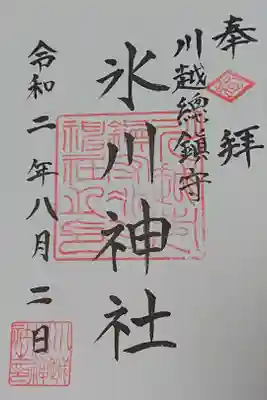 奉拜
川越總鎮守
氷川神社
令和二年八月二日